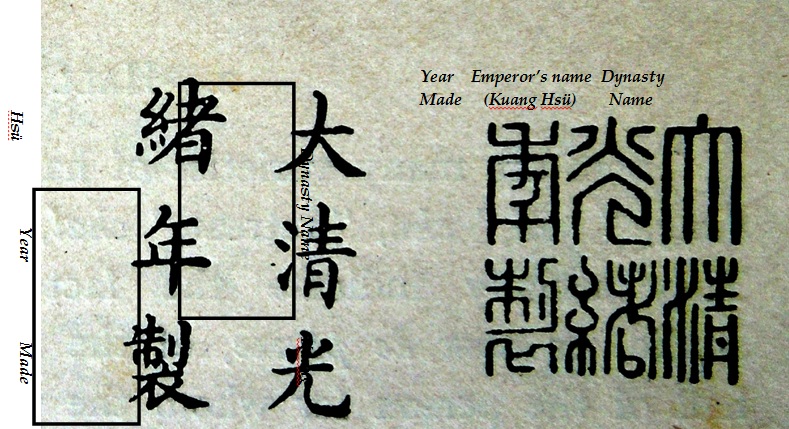 大清光
緒年製
Hsü
Year
Made
Dynasty Name
Year Emperor's name Dynasty
Made (Kuang Hsü) Name
大清
光緒
年製